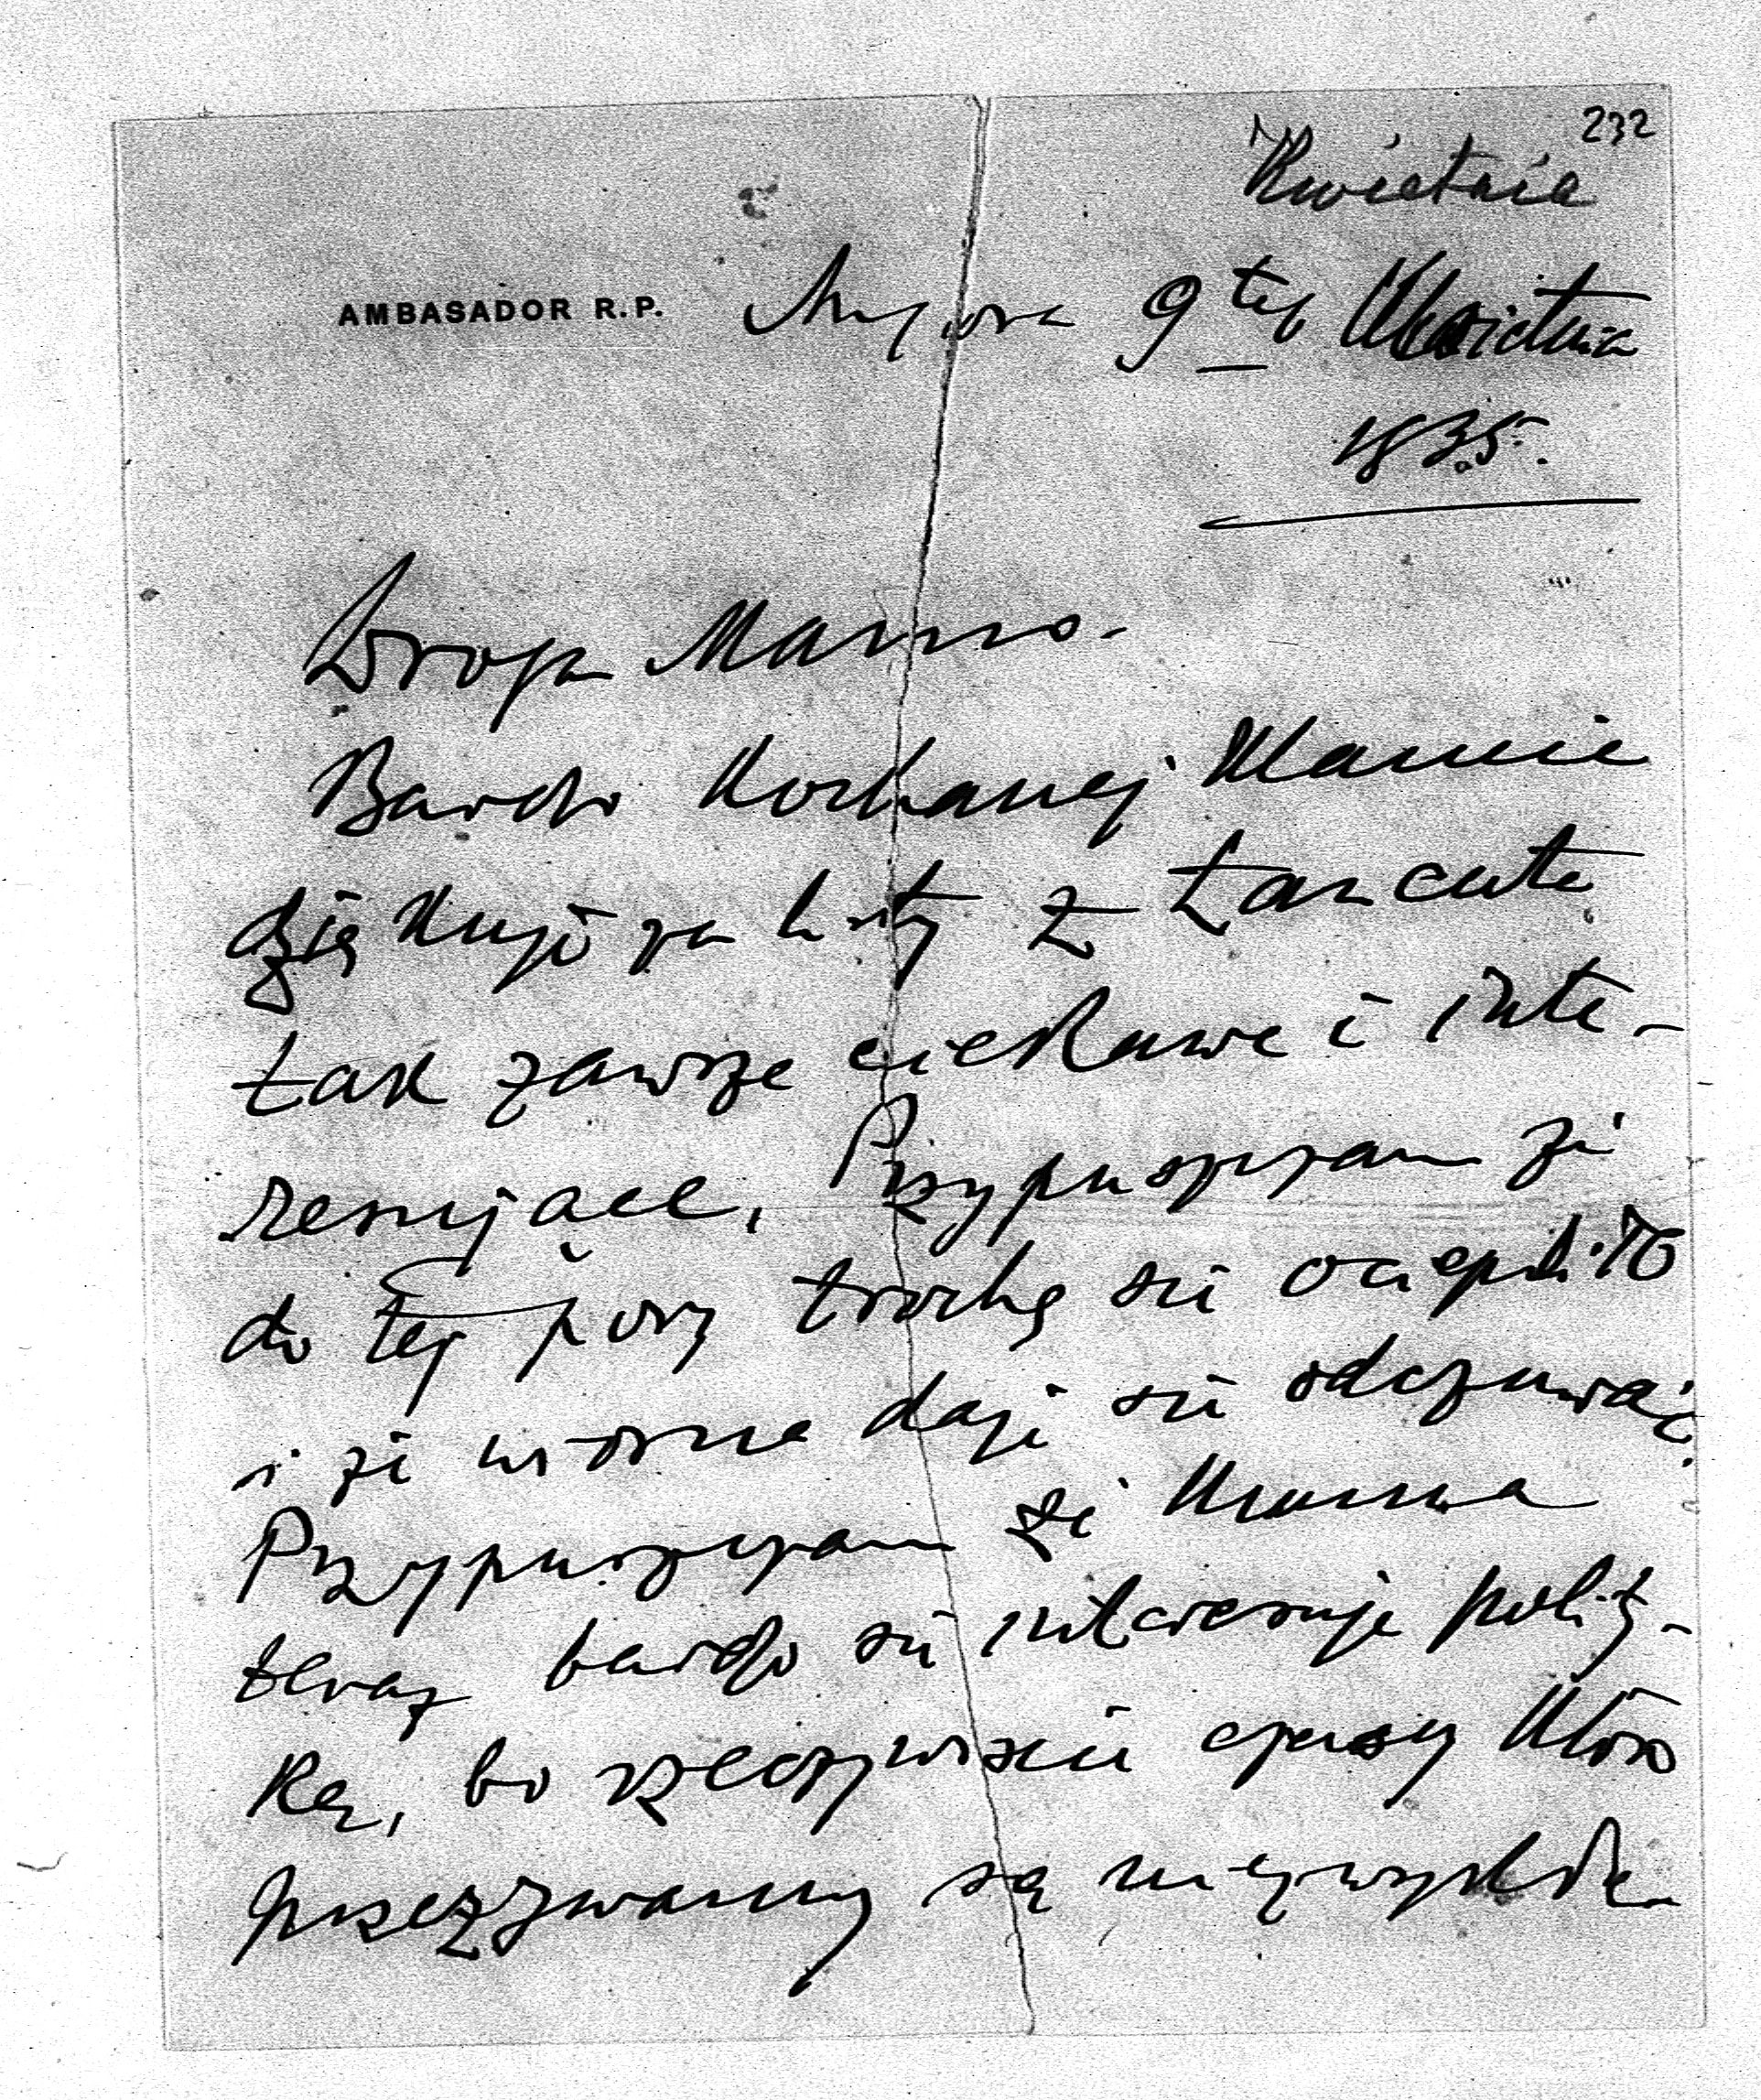 232
Kwietnia
AMBASADOR R.P. Ankara 9tego Kwietnia
1935.
Droga Mamo.
Bardzo Kochanej Mamie
dziękuję za listy z Łancuta
tak zawsze ciekawe i inte-
resujące, Przypuszczam że
do tej pory trochę się ociepliło
i że wiosna daje się odczuwać.
Przypuszczam że Mama
teraz bardzo się interesuje polity-
Ką, bo rzeczywiście czasy Które
przeżywamy są niezwykłe